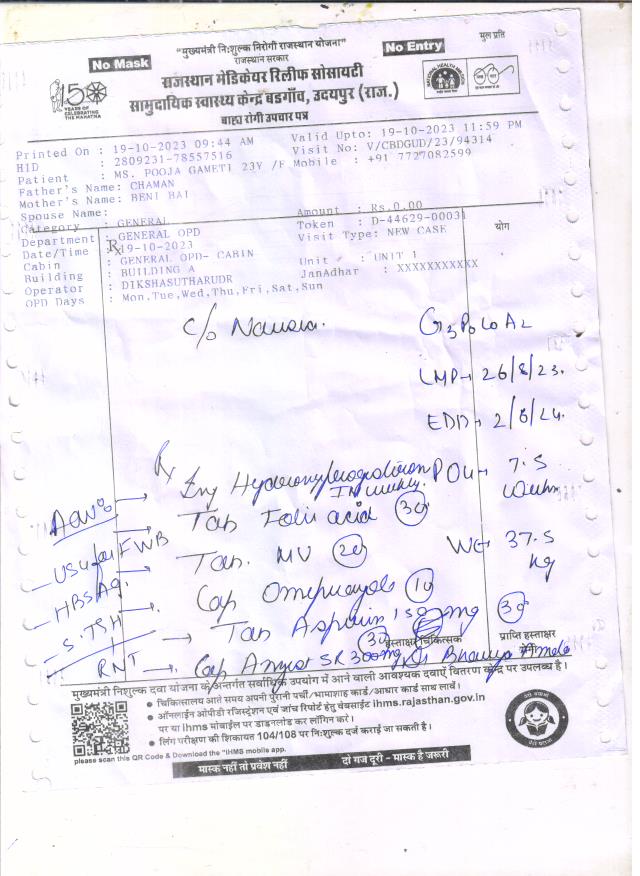 "मुख्यमंत्री निःशुल्क निरोगी राजस्थान योजना"
मुल प्रति
No Mask
राजस्थान सरकार
No Entry
राजस्थान मेडिकेयर रिलीफ सोसायटी
सामुदायिक स्वास्थ्य केन्द्र बडगाँव, उदयपुर (राज.)
बाह्य रोगी उपचार पत्र
150
YEARS OF
CELEBRATING
THE MAHATMA
NATIONAL HEALTH MISSION
Printed On : 19-10-2023 09:44 AM Valid Upto: 19-10-2023 11:59 PM
HID : 2809231-78557516 Visit No: V/CBDGUD/23/94314
Patient : MS. POOJA GAMETI 23Y /F Mobile : +91 7727082599
Father's Name: CHAMAN
Mother's Name: BENI BAI
Spouse Name: Amount : Rs.0.00
Category : GENERAL Token : D-44629-00031
Department : GENERAL OPD Visit Type: NEW CASE योग
Date/Time : 19-10-2023
Cabin : GENERAL OPD- CABIN Unit : UNIT 1
Building : BUILDING A JanAdhar : XXXXXXXXXXX
Operator : DIKSHASUTHARUDR
OPD Days : Mon,Tue,Wed,Thu,Fri,Sat,Sun
c/o Nausea. G3P0L0A2
LMP→ 26/8/23.
EDD→ 2/6/24.
Rx
Inj Hydroxyprogesteron POG→ 7.5
IM weekly. weeks
Tab Folic acid 30
USG for FWB
Tab. MV 20 Wt→ 37.5
kg
HBsAg.
Cap Omeprazole 10
S. TSH
Tab Aspirin 150 mg 30
30 हस्ताक्षर चिकित्सक प्राप्ति हस्ताक्षर
RNT → Cap SR 300mg
मुख्यमंत्री निःशुल्क दवा योजना के अन्तर्गत सर्वाधिक उपयोग में आने वाली आवश्यक दवाएं वितरण केन्द्र पर उपलब्ध है।
• चिकित्सालय आते समय अपनी पुरानी पर्ची/भामाशाह कार्ड/आधार कार्ड साथ लावें।
• ऑनलाईन ओपीडी रजिस्ट्रेशन एवं जांच रिपोर्ट हेतु वेबसाईट ihms.rajasthan.gov.in
पर या ihms मोबाईल पर डाउनलोड कर लॉगिन करें।
• लिंग परीक्षण की शिकायत 104/108 पर निःशुल्क दर्ज कराई जा सकती है।
please scan this QR Code & Download the "IHMS mobile app.
मास्क नहीं तो प्रवेश नहीं दो गज दूरी - मास्क है जरूरी